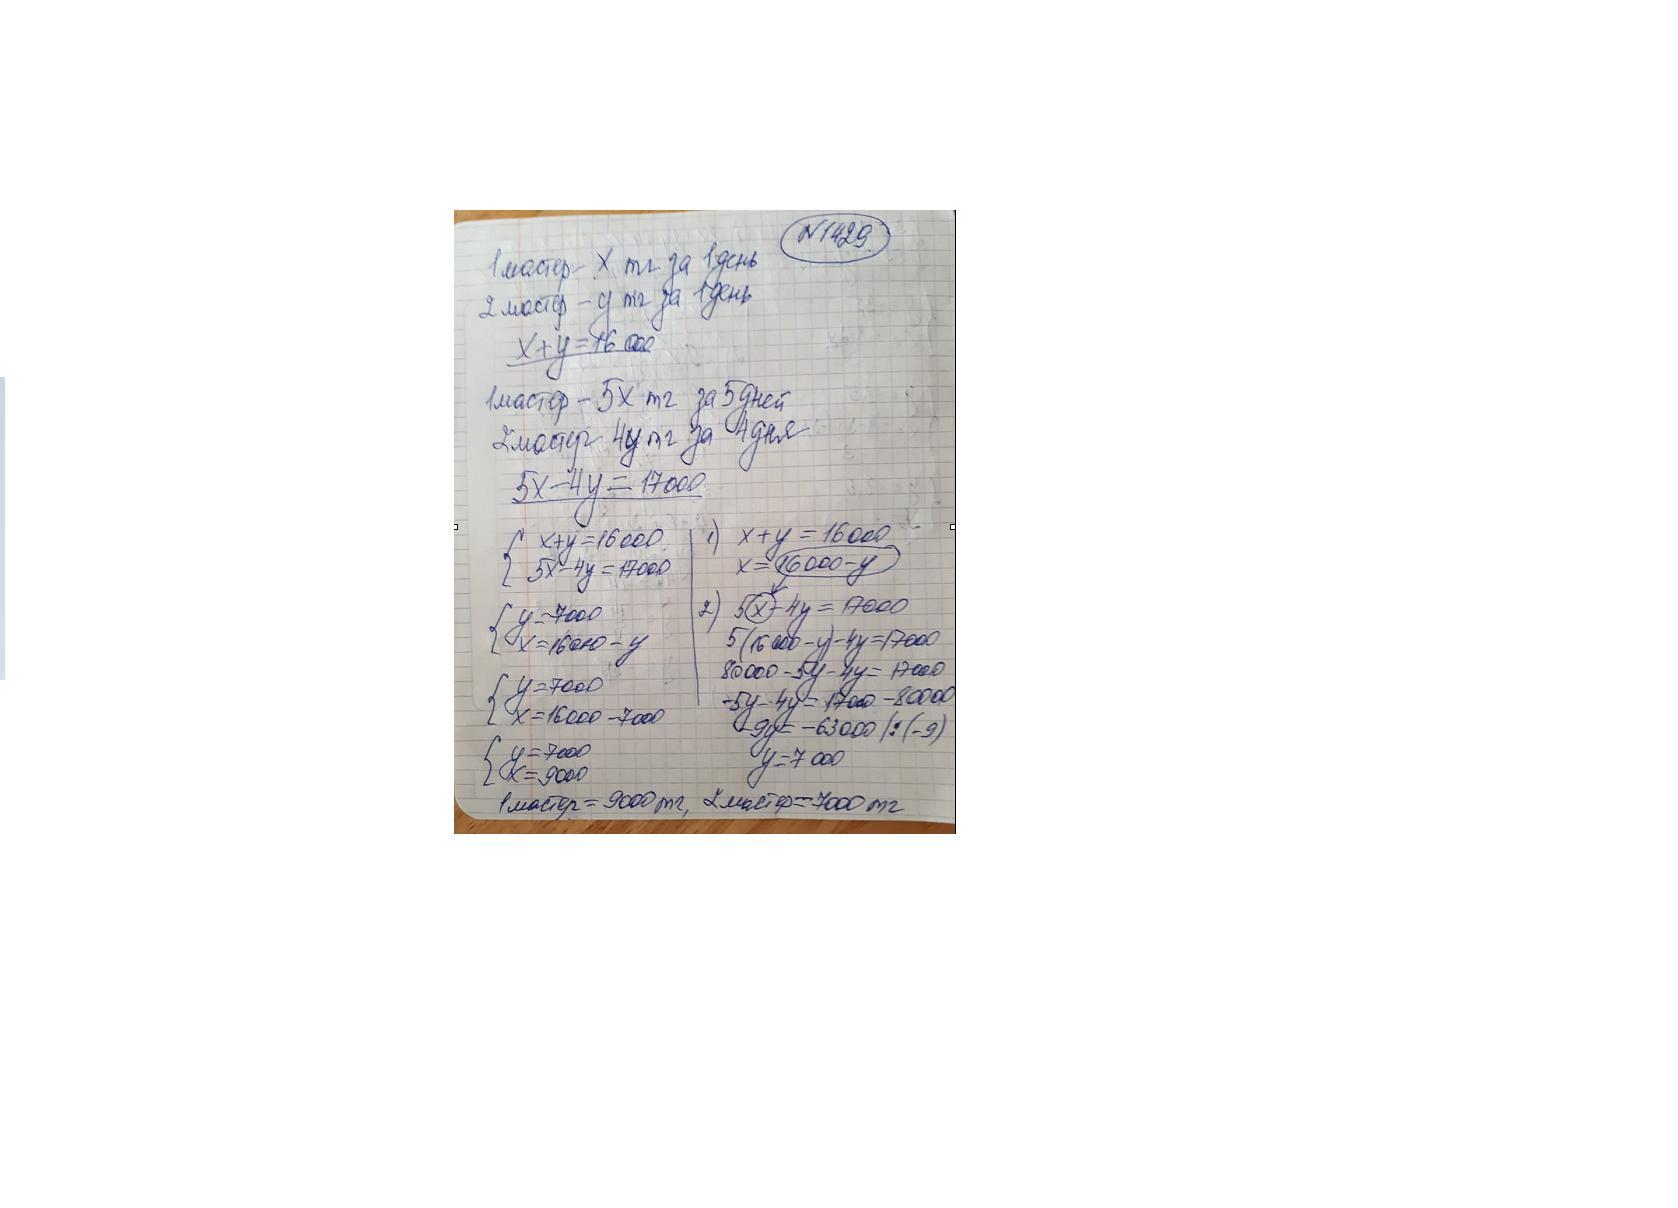 N1429
1 мастер - x тг за 1 день
2 мастер - y тг за 1 день
x+y=16 000
1 мастер - 5x тг за 5 дней
2 мастер 4y тг за 4 дня
5x-4y=17000
x+y=16000
5x-4y=17000
y=7000
x=16000-y
y=7000
x=16000-7000
y=7000
x=9000
1) x+y=16000
x=16000-y
2) 5x-4y=17000
5(16000-y)-4y=17000
80000-5y-4y=17000
-5y-4y=17000-80000
-9y=-63000 |:(-9)
y=7000
1 мастер=9000 тг, 2 мастер=7000 тг